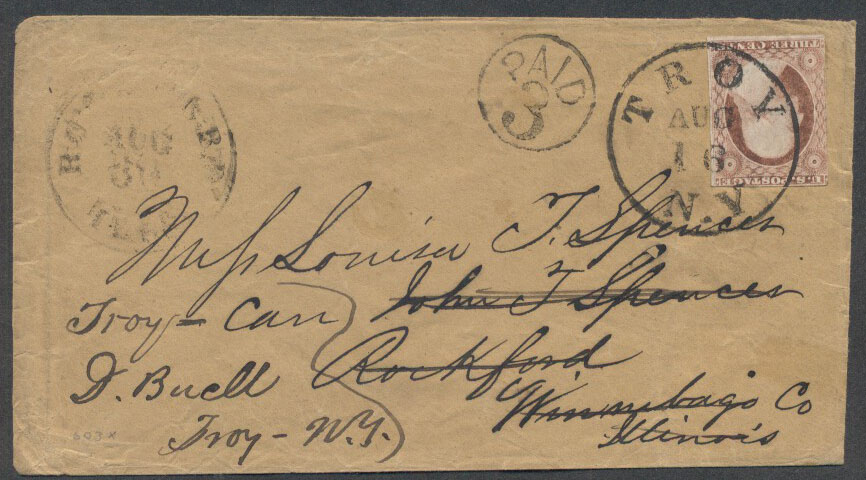 PAID
3
TROY
AUG
16
N.Y.
THREE CENTS
U.S. POSTAGE
AUG
Miss Louisa T. Spencer
John T Spencer
Rockford
Winnebago Co
Illinois
Troy - Care
D. Buell
Troy - N.Y.